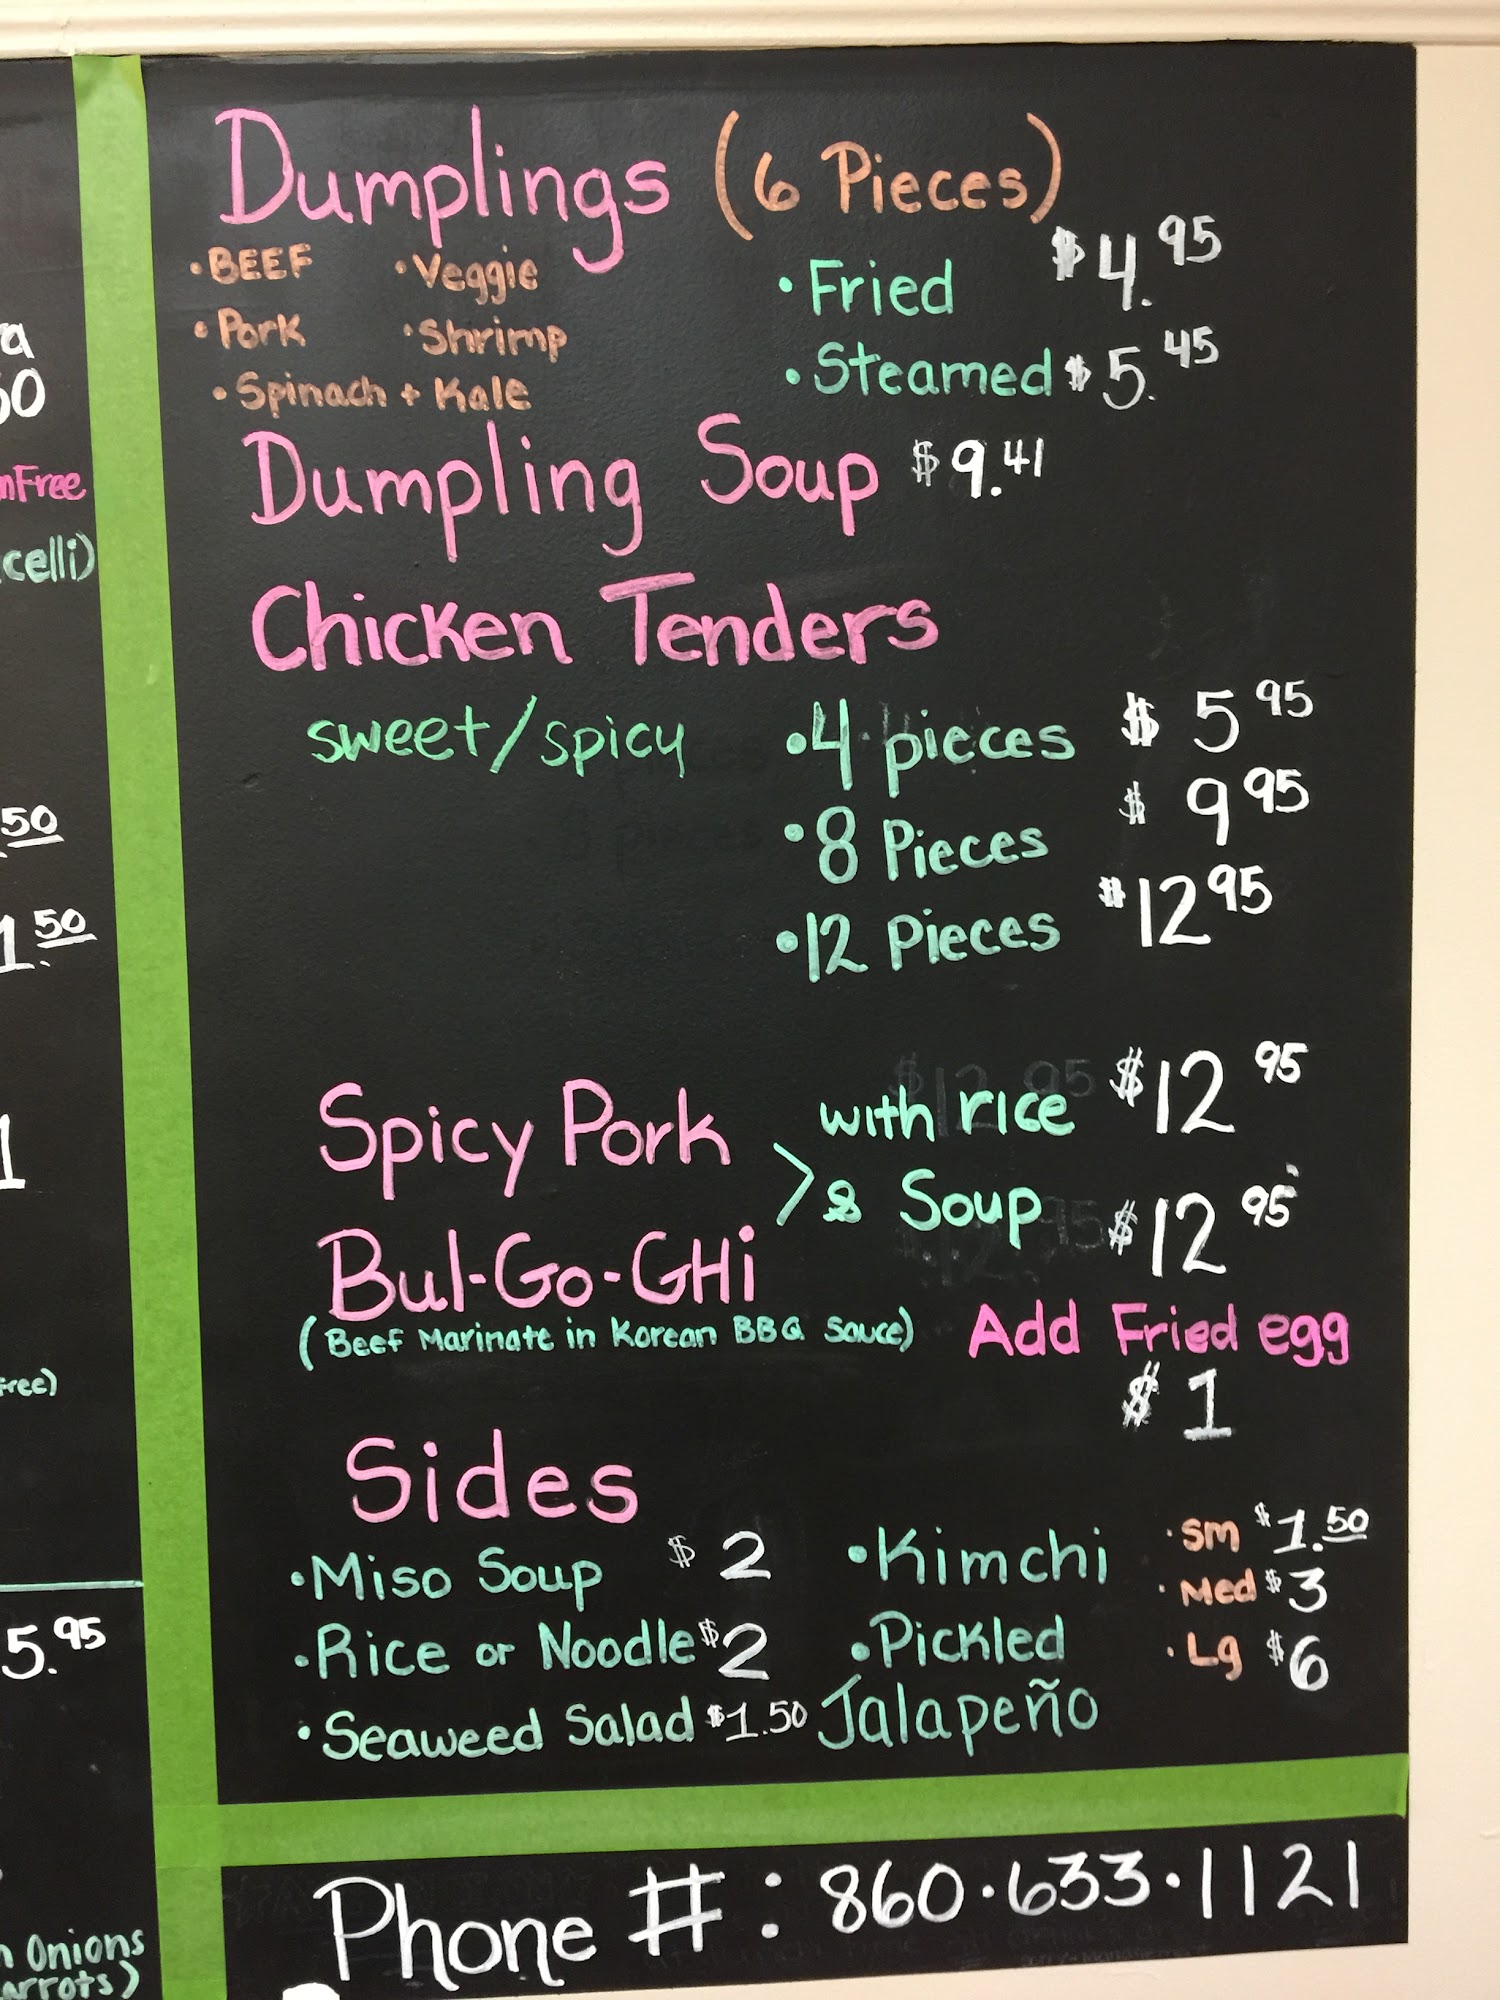 Dumplings (6 Pieces)
• BEEF • Veggie
• Pork • Shrimp
• Spinach + Kale
• Fried $4.95
• Steamed $5.45
Dumpling Soup $9.41
Chicken Tenders
sweet/spicy
• 4 pieces $5 95
• 8 Pieces $9 95
• 12 Pieces $12 95
Spicy Pork
Bul-Go-GHi
> with rice $12 95
& Soup $12 95
(Beef Marinate in Korean BBQ Sauce)
Add Fried egg
$1
Sides
• Miso Soup $2
• Rice or Noodle $2
• Seaweed Salad $1.50
• Kimchi
• Pickled
Jalapeño
• SM $1.50
• Med $3
• Lg $6
Phone # : 860·633·1121
50
1 50
1
5.95
Onions